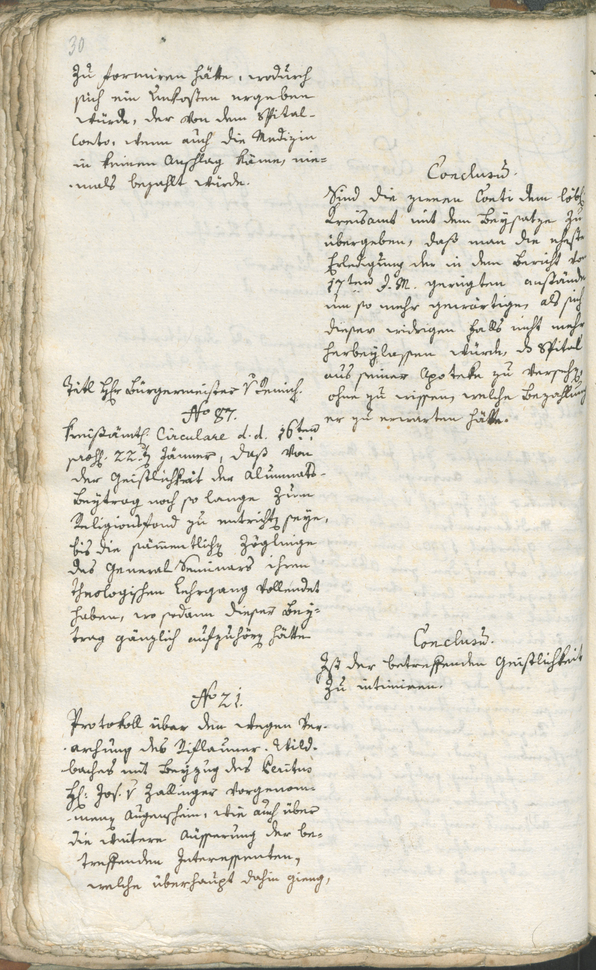 30
zu formiren hätte, wodurch
sich ein Unkosten ergeben
würde, der von dem Spital-
Conto, wenn auch die Medizin
in keinen Anschlag käme, nie=
mals bezahlt würde.
Conclusum.
Sind die zween Conti dem löbl:
Kreisamt mit dem Beysatze zu
übergeben, daß man die
Erledigung der in dem Bericht vom
17ten d. M. gerügten Anstände
um so mehr gewärtige, als sich
dieser widrigen Falls nicht mehr
herbeylassen würde, das Spital
aus seiner Apoteke zu
ohne zu wissen, welche Bezahlung
er zu erwarten hätte.
Titl Hr Bürgermeister v
No 87.
Kreisämtl: Circulare d. d. 16ten
praes. 22ten Jänner, daß von
der Geistlichkeit der Alumnats-
Beytrag noch so lange zum
Religionsfond zu entrichten seye,
bis die sämmentliche Zöglinge
des General Seminars ihren
theologischen Lehrgang vollendet
haben, wo sodann dieser Bey-
trag gänzlich aufzuhören hätte
Conclusum.
Ist der betreffenden Geistlichkeit
zu intimiren.
No 21.
Protokoll über den wegen Ver-
archung des Wild-
baches mit Beyzug des Peritus
H: Jos. v Zallinger vorgenom-
menen Augenschein, wie auch über
die weitere Äusserung der be=
treffenden Interessenten,
welche überhaupt dahin gieng,